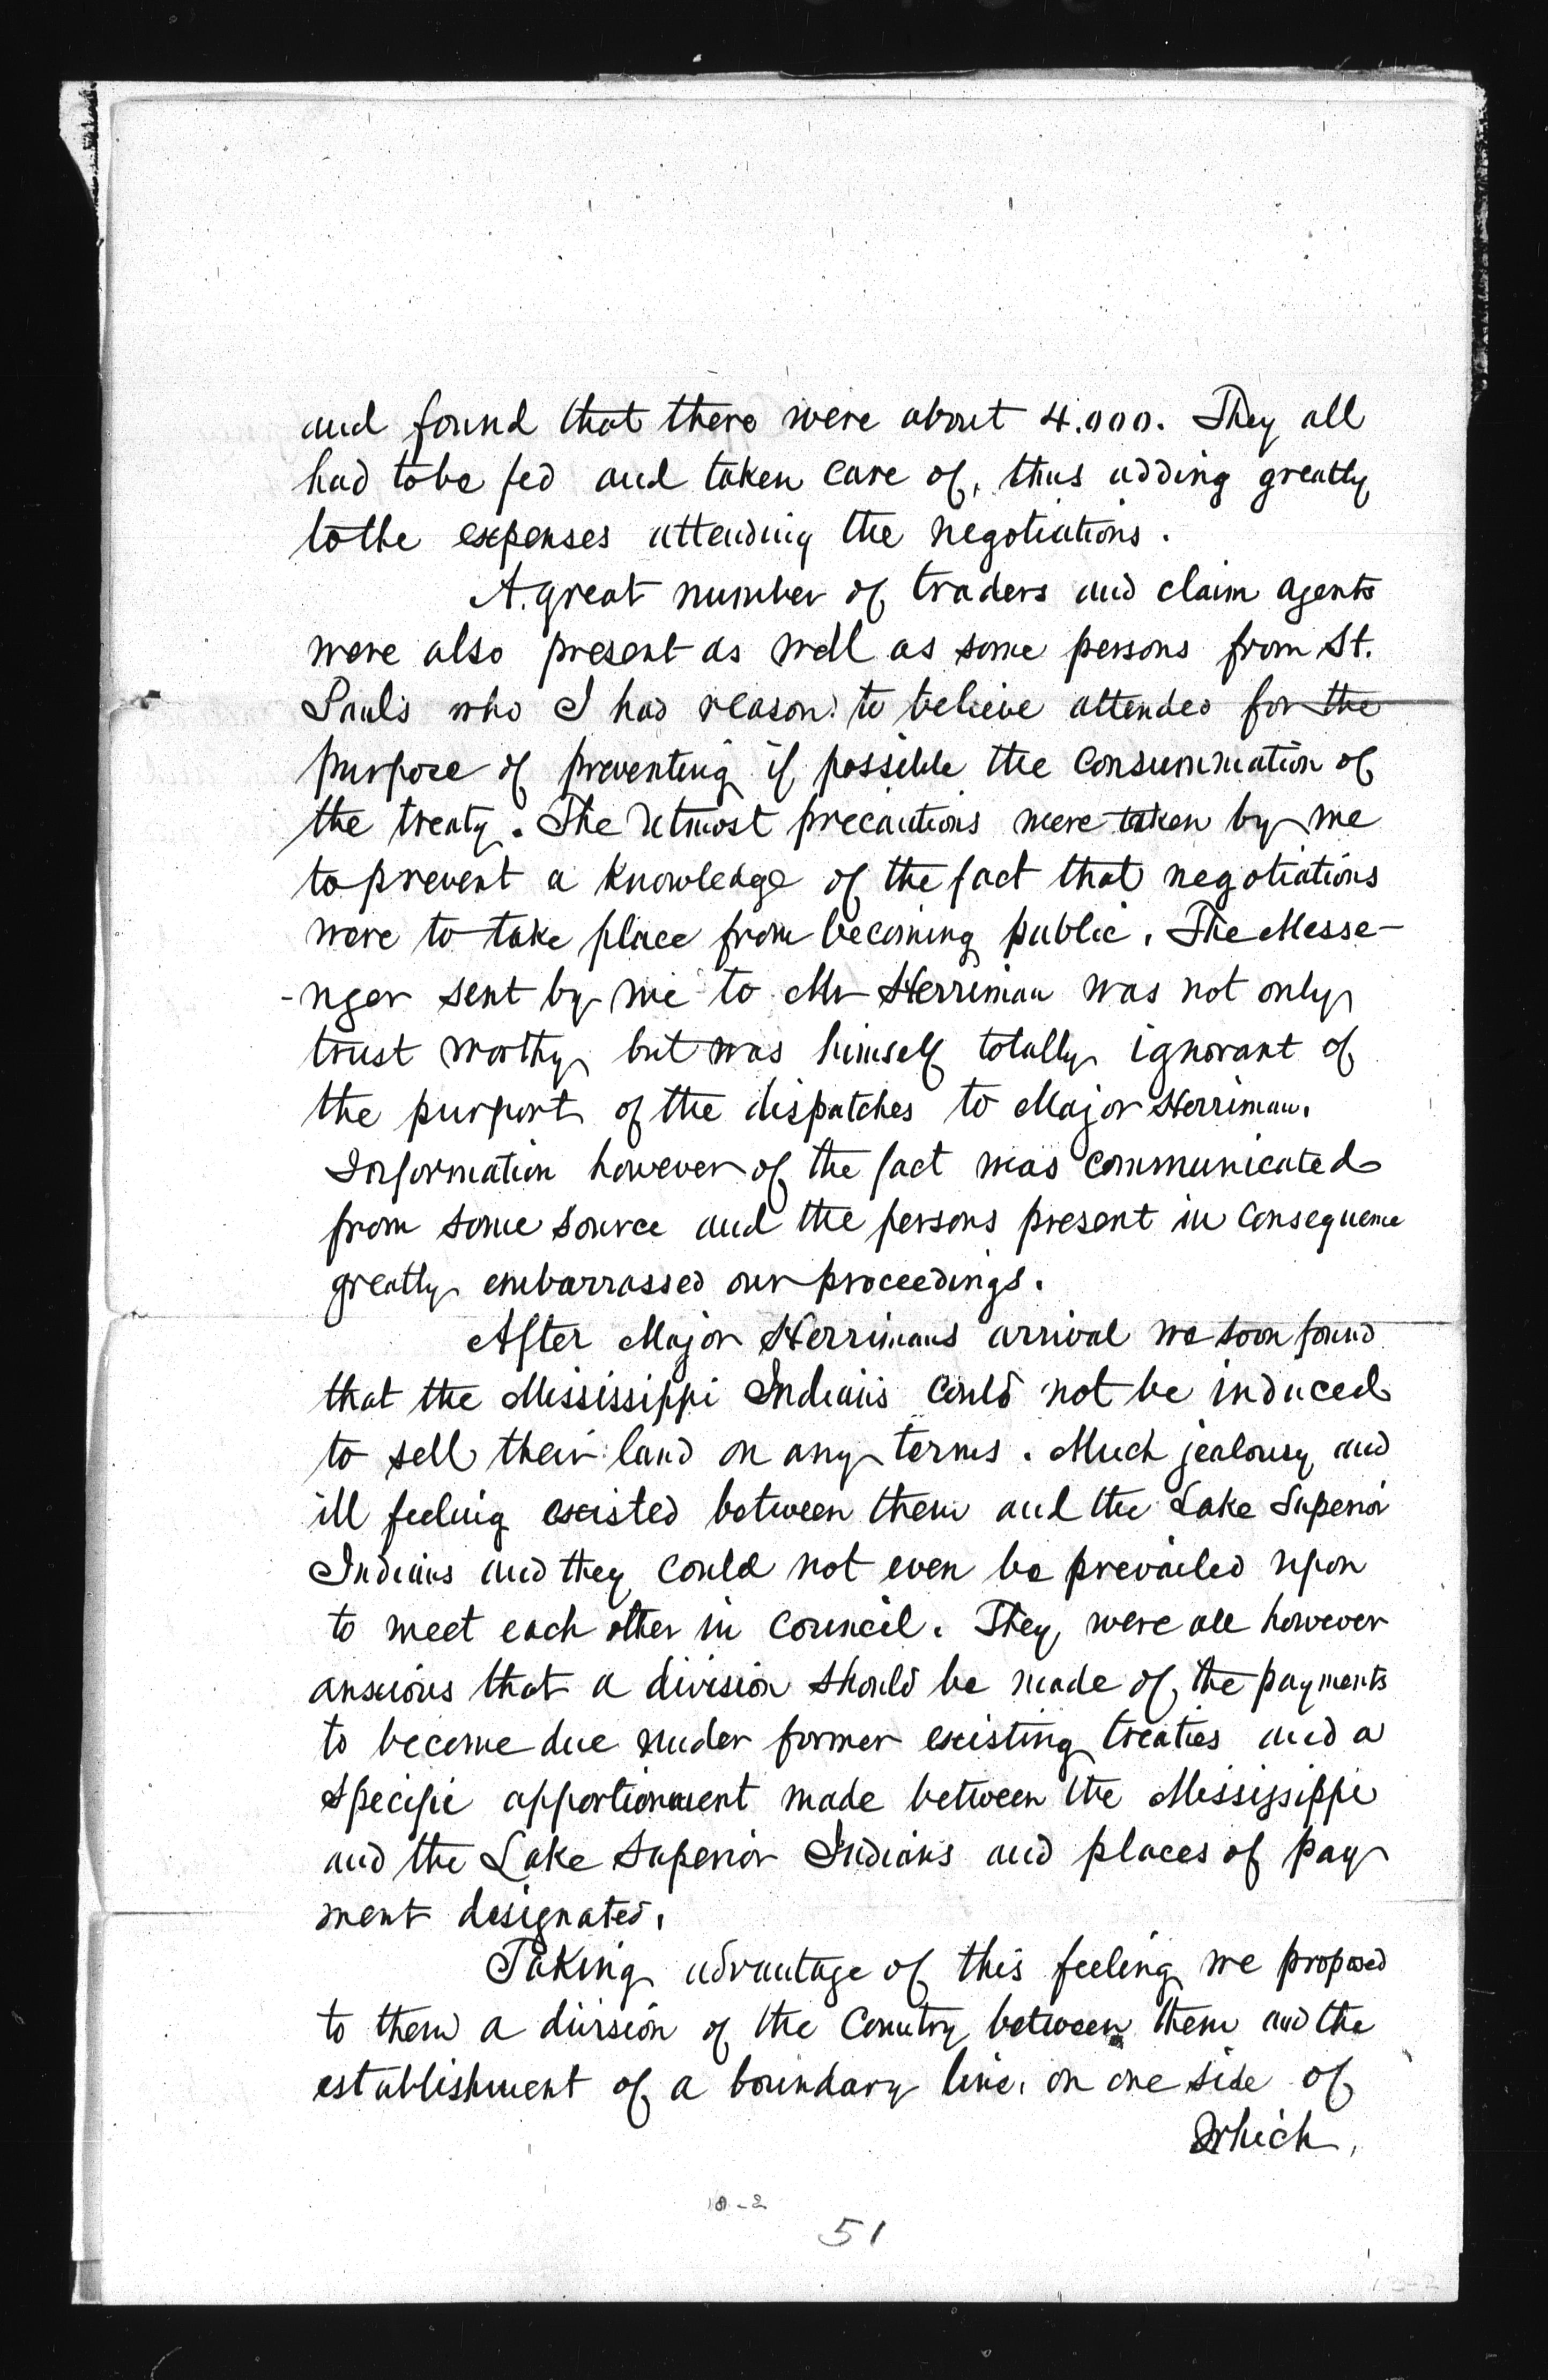 and found that there were about 4.000. They all
had to be fed and taken care of, thus adding greatly
to the expenses attending the negotiations.
A great number of traders and claim agents
were also present as well as some persons from St.
Paul's who I had reason to believe attended for the
purpose of preventing if possible the consummation of
the treaty. The utmost precautions were taken by me
to prevent a knowledge of the fact that negotiations
were to take place from becoming public. The Messe-
-nger sent by me to Mr Herriman was not only
trust worthy but was himself totally ignorant of
the purport of the dispatches to Major Herriman.
Information however of the fact was communicated
from some source and the persons present in consequence
greatly embarrassed our proceedings.
After Major Herrimans arrival we soon found
that the Mississippi Indians could not be induced
to sell their land on any terms. Much jealousy and
ill feeling existed between them and the Lake Superior
Indians and they could not even be prevailed upon
to meet each other in council. They were all however
anxious that a division should be made of the payments
to become due under former existing treaties and a
specific apportionment made between the Mississippi
and the Lake Superior Indians and places of pay
ment designated.
Taking advantage of this feeling we proposed
to them a division of the Country between them and the
establishment of a boundary line, on one side of
which,
18-2
51